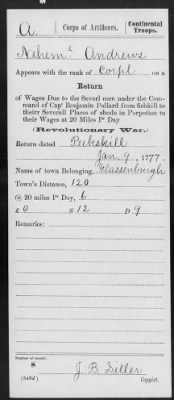 A. | Corps of Artificers. | Continental Troops.
Nehemh Andrews
Appears with the rank of Corpl on a
Return
of Wages Due to the Severl men under the Com-
mand of Capt Benjamin Pollard from fishkill to
theirr Severall Places of abode in Porpotion to
their Wages at 20 Miles 1st Day
(Revolutionary War.)
Return dated Peekskill
Jan 9, 1777.
Name of town Belonging, Glassenburgh
Town's Distance, 120
@ 20 miles 1st Day, 6
£ 0 S 12 D 9
Remarks:
Number of record:
8
J. B. Sitler
(645d) Copyist.